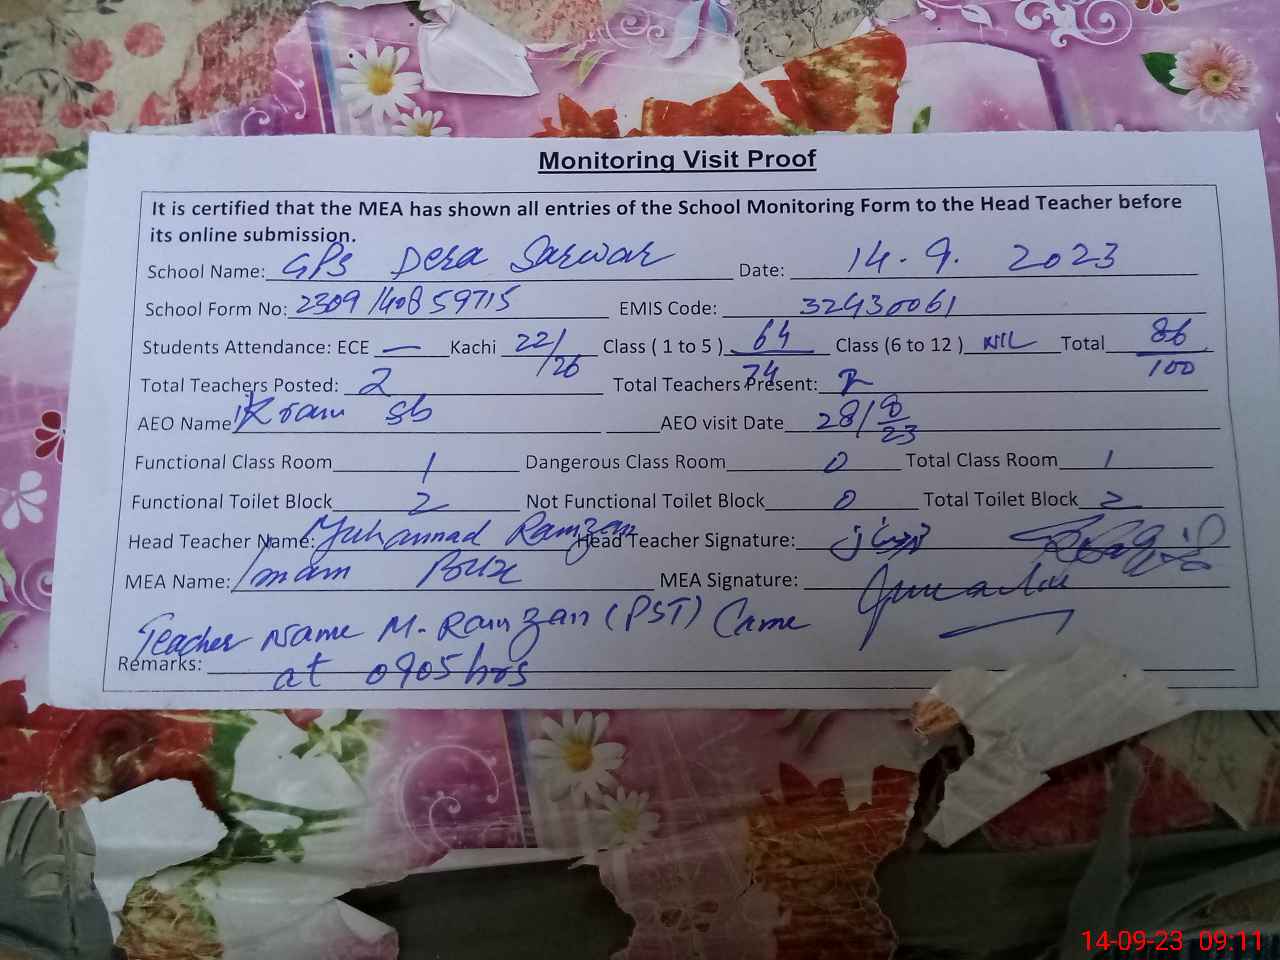 Monitoring Visit Proof
It is certified that the MEA has shown all entries of the School Monitoring Form to the Head Teacher before
its online submission.
School Name: GPS Dera Sarwar Date: 14.9.2023
School Form No: 2309/40859715 EMIS Code: 32430061
Students Attendance: ECE — Kachi 22/26 Class ( 1 to 5 ) 64/74 Class (6 to 12 ) NIL Total 86/100
Total Teachers Posted: 2 Total Teachers Present: 2
AEO Name Ikram sb AEO visit Date 28/8/23
Functional Class Room 1 Dangerous Class Room 0 Total Class Room 1
Functional Toilet Block 2 Not Functional Toilet Block 0 Total Toilet Block 2
Head Teacher Name: Muhammad Ramzan Head Teacher Signature:
MEA Name: Imam Bux MEA Signature:
Teacher Name M. Ramzan (PST) Came
Remarks: at 0905hrs
14-09-23 09:11